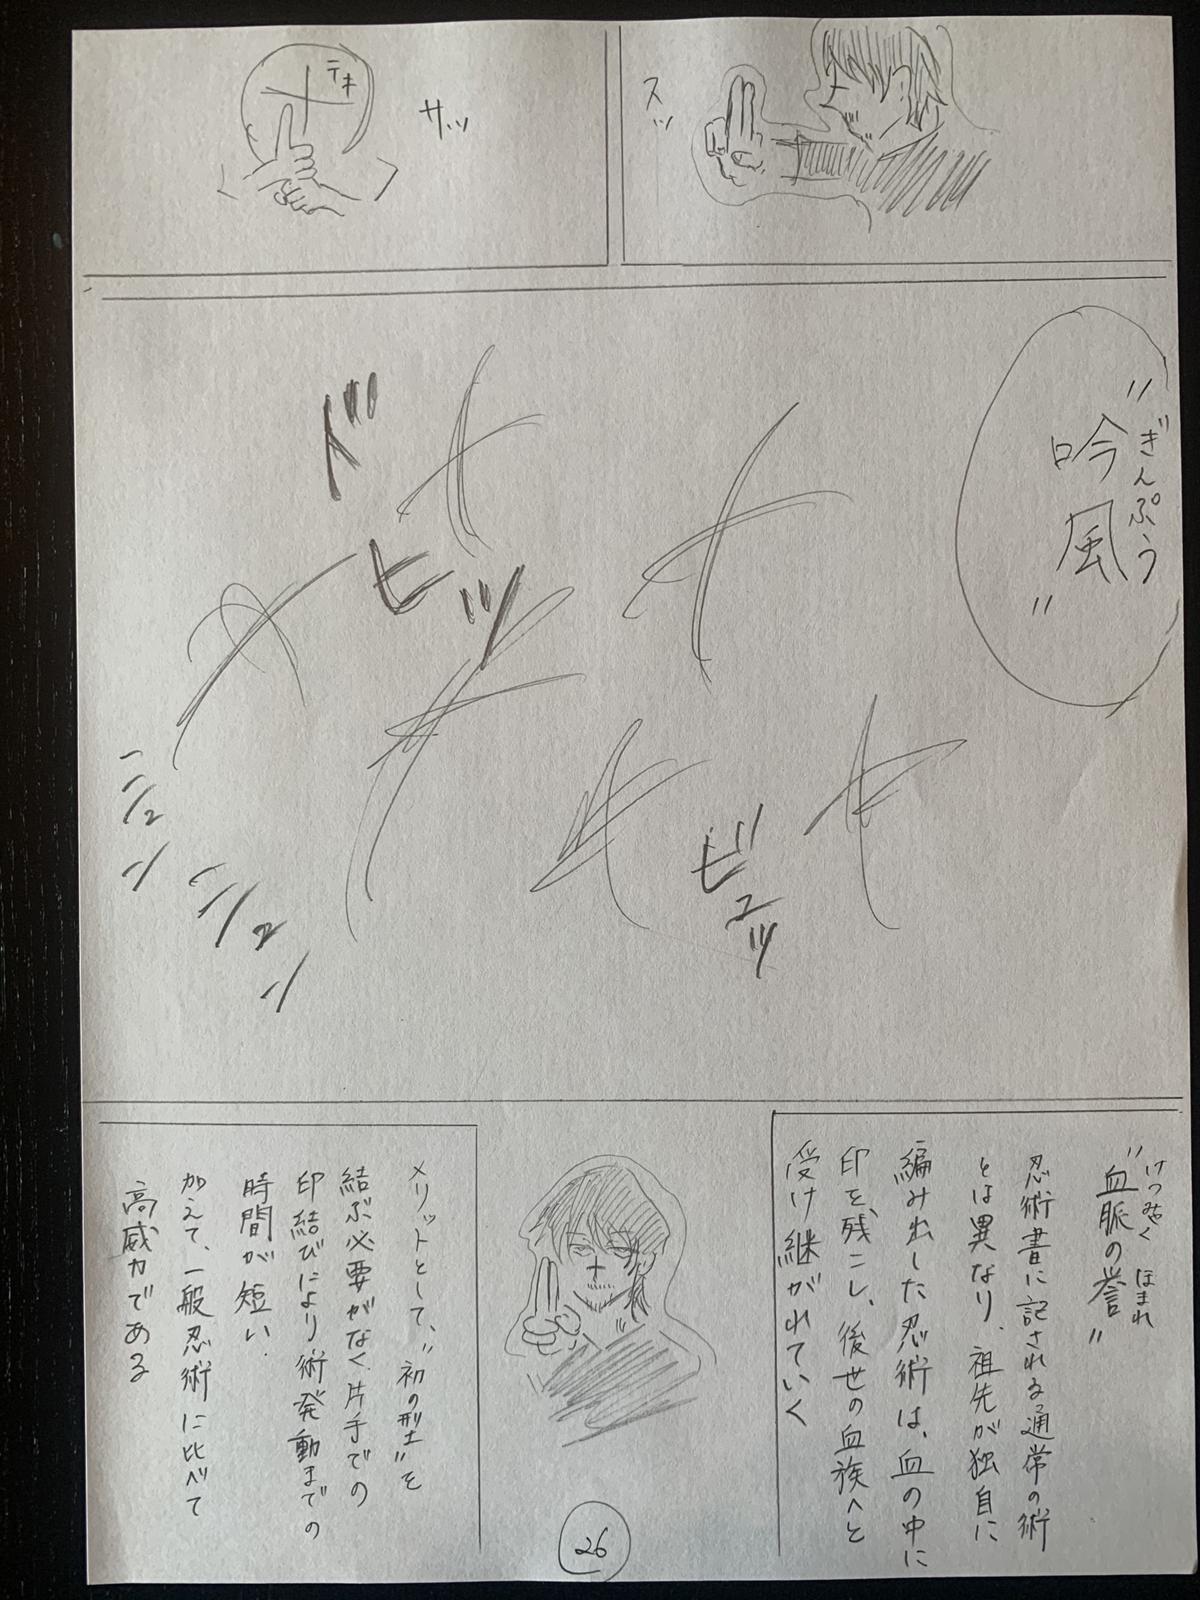 スッ
サッ
テキ
"吟風"
ぎんぷう
ドヒッ
ビュッ
ニュン
ニュン
"血脈の誉"
けつみゃく ほまれ
忍術書に記される通常の術
とは異なり、祖先が独自に
編み出した忍術は、血の中に
印を残こし、後世の血族へと
受け継がれていく
メリットとして、"初の型"を
結ぶ必要がなく、片手での
印結びにより術発動までの
時間が短い.
加えて、一般忍術に比べて
高威力である
26